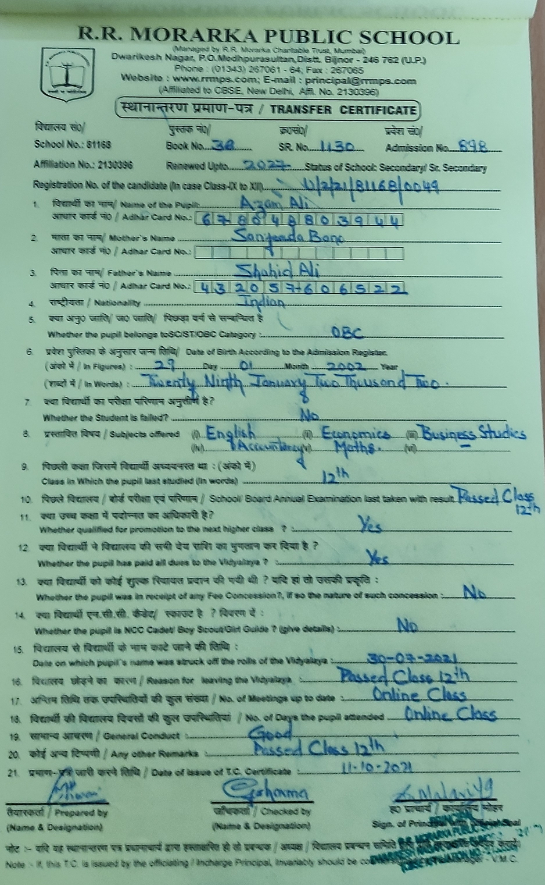 R.R. MORARKA PUBLIC SCHOOL
(Managed by R.R. Morarka Charitable Trust, Mumbai)
Dwarikesh Nagar, P.O. Medhpurasultan, Distt. Bijnor - 246 762 (U.P.)
Phone : (01343) 267061 - 64, Fax : 267065
Website : www.rrmps.com; E-mail : principal@rrmps.com
(Affiliated to CBSE, New Delhi, Affi. No. 2130396)
स्थानान्तरण प्रमाण-पत्र / TRANSFER CERTIFICATE
विद्यालय सं०/ पुस्तक नं०/ क्र०सं०/ प्रवेश सं०/
School No.: 81168 Book No. 38 SR. No. 1130 Admission No. 898
Affiliation No.: 2130396 Renewed Upto 2027 Status of School: Secondary/ Sr. Secondary
Registration No. of the candidate (in case Class-IX to XII) /2/21/81168/0049
1. विद्यार्थी का नाम/ Name of the Pupil: Azam Ali
आधार कार्ड नं०/ Adhar Card No.: 678048803944
2. माता का नाम/ Mother's Name Bano
आधार कार्ड नं०/ Adhar Card No.:
3. पिता का नाम/ Father's Name Shahid Ali
आधार कार्ड नं०/ Adhar Card No.: 432057606522
4. राष्ट्रीयता / Nationality Indian
5. क्या अनु० जाति/ ज० जाति/ पिछड़ा वर्ग से सम्बन्धित है
Whether the pupil belongs to SC/ST/OBC Category : OBC
6. प्रवेश पुस्तिका के अनुसार जन्म तिथि/ Date of Birth According to the Admission Register.
(अंको में / In Figures) : 29 Day 01 Month 2002 Year
(शब्दों में / In Words) : Twenty Ninth January Two Thusand Two.
7. क्या विद्यार्थी का परीक्षा परिणाम अनुत्तीर्ण है?
Whether the Student is failed? No
8. प्रस्तावित विषय / Subjects offered (i) English (ii) Economics (iii) Business Studies
(iv) Accountancy (v) Maths. (vi)
9. पिछली कक्षा जिसमें विद्यार्थी अध्ययनरत था : (अंको में)
Class in Which the pupil last studied (in words) 12th
10. पिछले विद्यालय / बोर्ड परीक्षा एवं परिणाम / School/ Board Annual Examination last taken with result Passed Class 12th
11. क्या उच्च कक्षा में पदोन्नत का अधिकारी है?
Whether qualified for promotion to the next higher class ? : Yes
12. क्या विद्यार्थी ने विद्यालय की सभी देय राशि का भुगतान कर दिया है ?
Whether the pupil has paid all dues to the Vidyalaya ? : Yes
13. क्या विद्यार्थी को कोई शुल्क रियायत प्रदान की गयी थी ? यदि हां तो उसकी प्रकृति :
Whether the pupil was in receipt of any Fee Concession?, if so the nature of such concession : No
14. क्या विद्यार्थी एन.सी.सी. कैडेट/ स्काउट है ? विवरण दें :
Whether the pupil is NCC Cadet/ Boy Scout/Girl Guide ? (give details) : No
15. विद्यालय से विद्यार्थी के नाम काटे जाने की तिथि :
Date on which pupil's name was struck off the rolls of the Vidyalaya : 30-07-2021
16. विद्यालय छोड़ने का कारण / Reason for leaving the Vidyalaya Passed Class 12th
17. अन्तिम तिथि तक उपस्थितियों की कुल संख्या / No. of Meetings up to date : Online Class
18. विद्यार्थी की विद्यालय दिवसों की कुल उपस्थितियां / No. of Days the pupil attended Online Class
19. सामान्य आचरण / General Conduct : Good
20. कोई अन्य टिप्पणी / Any other Remarks Passed Class 12th
21. प्रमाण-पत्र जारी करने तिथि / Date of issue of T.C. Certificate : 11-10-2021
तैयारकर्ता / Prepared by जाँचकर्ता / Checked by ह० प्राचार्य /
(Name & Designation) (Name & Designation) Sign. of Principal
नोट :- यदि यह स्थानान्तरण पत्र प्रधानाचार्य द्वारा हस्ताक्षरित हो तो प्रबन्धक / अध्यक्ष / विद्यालय प्रबन्धन समिति
Note :- If, this T.C. is issued by the officiating / Incharge Principal, Invariably should be Manager - V.M.C.